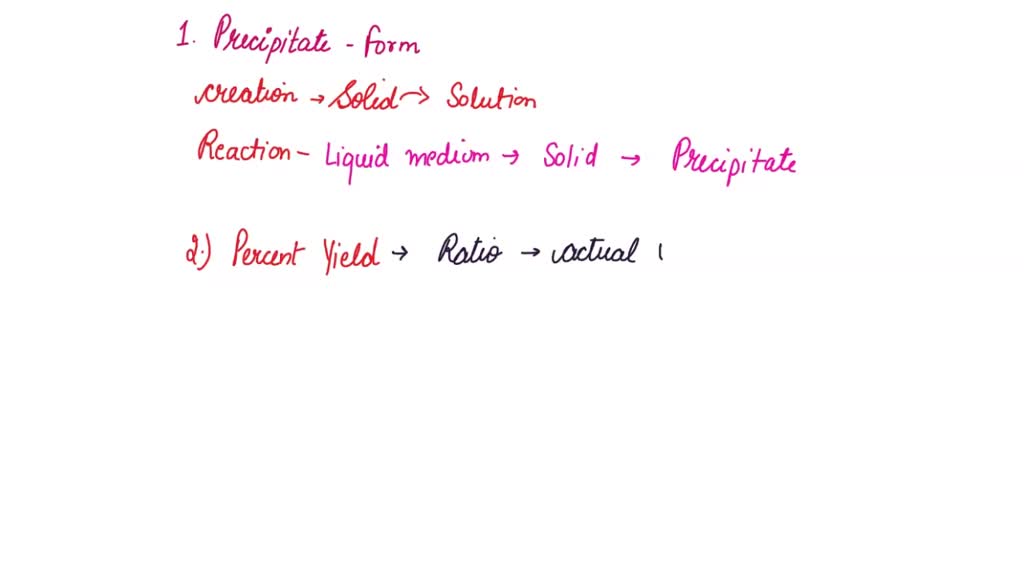 1. Precipitate - form
creation → Solid → Solution
Reaction - Liquid medium → Solid → Precipitate
2.) Percent Yield → Ratio → actual